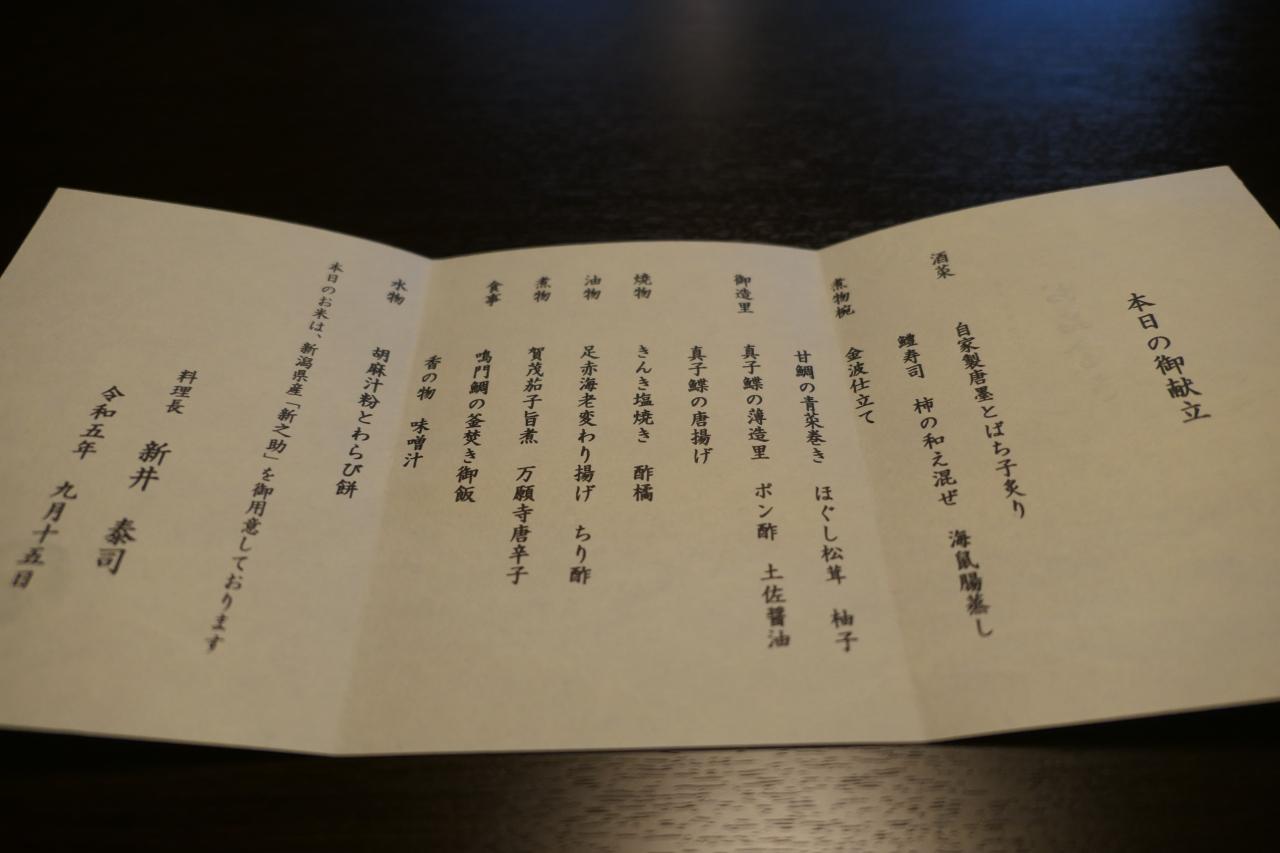 本日の御献立
酒菜
自家製唐墨とばち子炙り
鱧寿司 柿の和え混ぜ 海鼠腸蒸し
煮物椀 金波仕立て
甘鯛の青菜巻き ほぐし松茸 柚子
御造里 真子鰈の薄造里 ポン酢 土佐醤油
真子鰈の唐揚げ
焼物 きんき塩焼き 酢橘
油物 足赤海老変わり揚げ ちり酢
煮物 賀茂茄子旨煮 万願寺唐辛子
食事 鳴門鯛の釜焚き御飯
香の物 味噌汁
水物 胡麻汁粉とわらび餅
本日のお米は、新潟県産「新之助」を御用意しております
料理長 新井 泰司
令和五年 九月十五日